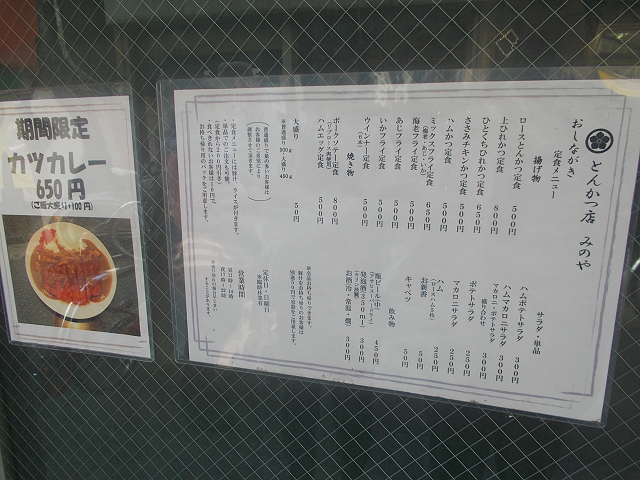 期間限定
カツカレー
650円
(ご飯大盛り+100円)
とんかつ店 みのや
おしながき
定食メニュー
揚げ物
ロースとんかつ定食 500円
上ひれかつ定食 800円
ひとくちひれかつ定食 650円
ささみチキンかつ定食 500円
ハムかつ定食 500円
ミックスフライ定食 650円
(海老・あじ・いか)
海老フライ定食 500円
あじフライ定食 500円
いかフライ定食 500円
ウインナー定食 500円
(6本)
焼き物
ポークソテー定食 800円
ハムエッグ定食 500円
大盛り 50円
サラダ・単品
ハムポテトサラダ 300円
ハムマカロニサラダ 300円
マカロニ・ポテトサラダ
盛り合わせ 300円
ポテトサラダ 250円
マカロニサラダ 250円
ハム 250円
お新香 50円
キャベツ 50円
飲み物
瓶ビール(中瓶) 450円
(アサヒスーパードライ)
発泡酒(350ml) 300円
お酒(冷・常温・燗) 300円
定休日・日曜日
営業時間